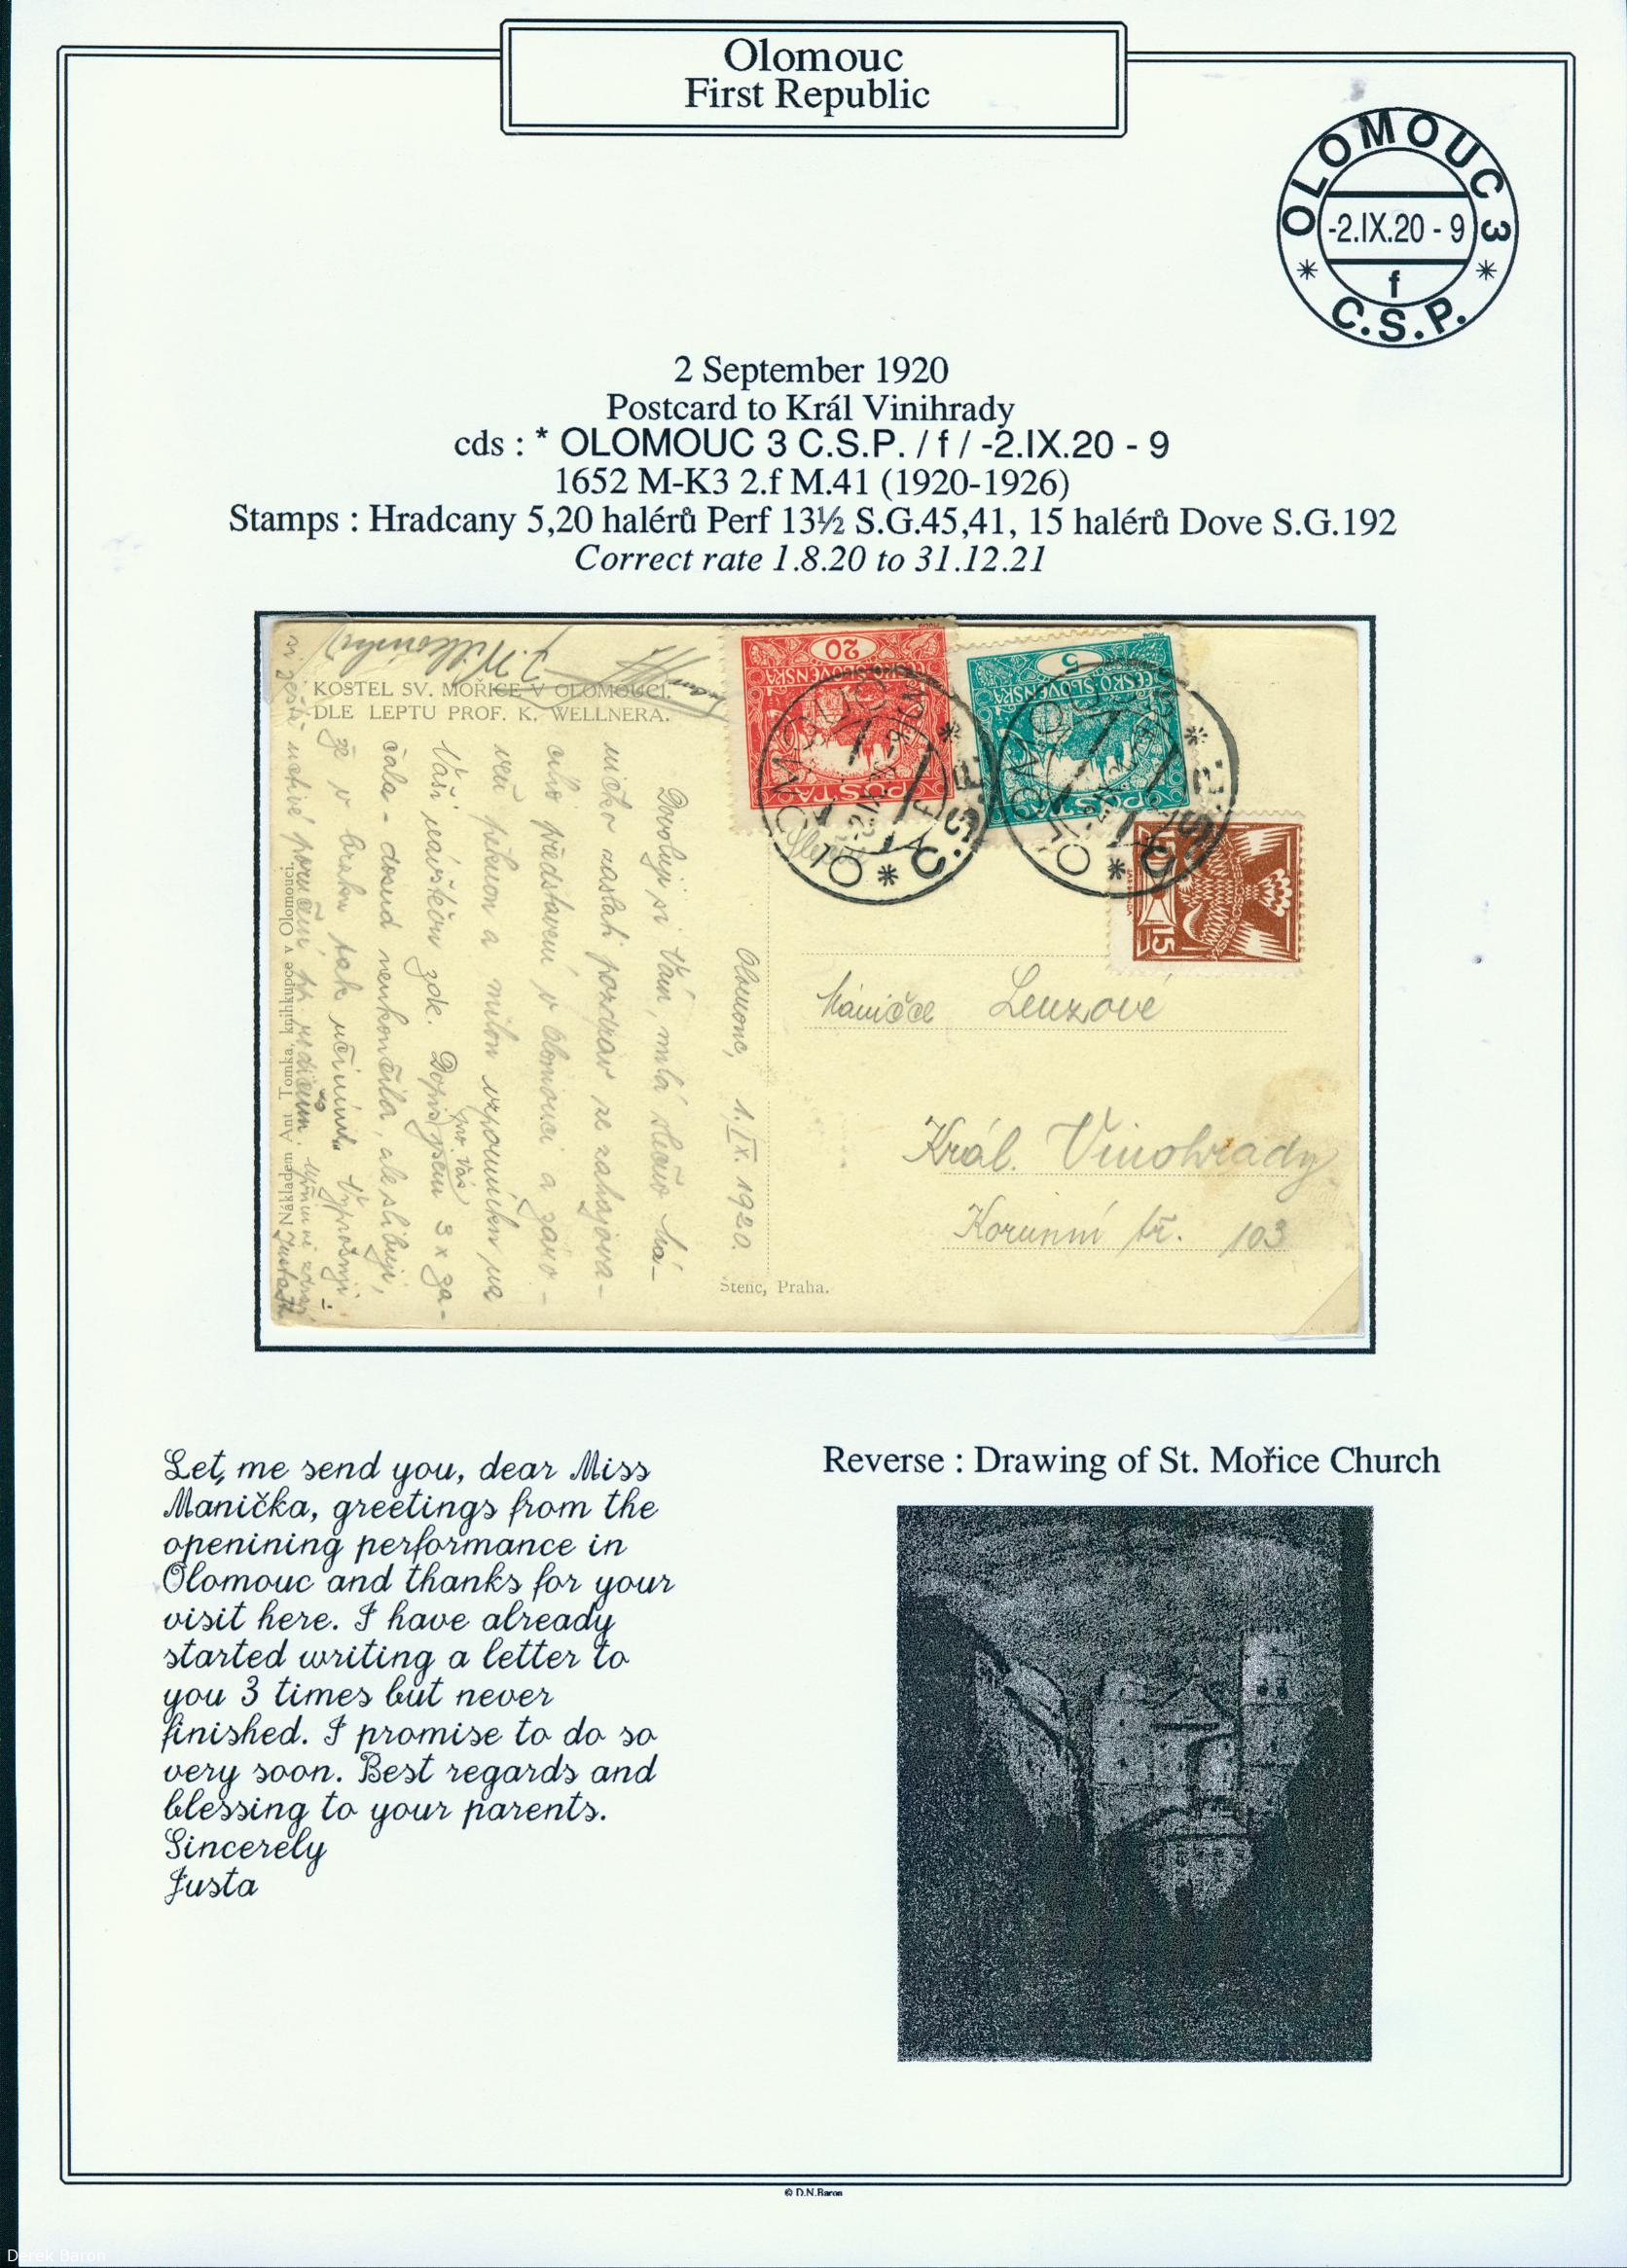 Olomouc
First Republic
OLOMOUC 3
-2.IX.20 - 9
f
* C.S.P. *
2 September 1920
Postcard to Král Vinihrady
cds : * OLOMOUC 3 C.S.P. / f / -2.IX.20 - 9
1652 M-K3 2.f M.41 (1920-1926)
Stamps : Hradcany 5,20 halérů Perf 13½ S.G.45,41, 15 halérů Dove S.G.192
Correct rate 1.8.20 to 31.12.21
KOSTEL SV. MOŘICE V OLOMOUCI.
DLE LEPTU PROF. K. WELLNERA.
20
ČESKO SLOVENSKÁ
POŠTA
5
ČESKO SLOVENSKÁ
POŠTA
15
OLOMOUC
C.S.P.
OLOMOUC
C.S.P.
Slečna
Máničce Lenzové
Král. Vinohrady
Korunní tř. 103
Olomouc, 1.IX.1920.
Dovoluji si Vám, milá slečno Má-
ničko zaslati pozdrav ze zahajova-
cího představení v Olomouci a záro-
veň pěknou a milou vzpomínku na
Vaši návštěvu zde. Dopis jsem 3 x za-
pro Vás
čala - dosud neukončila, ale slibuji,
že v brzku tak učiním.
Štenc, Praha.
Nákladem Ant. Tomka, knihkupce v Olomouci.
Let me send you, dear Miss
Manička, greetings from the
openining performance in
Olomouc and thanks for your
visit here. I have already
started writing a letter to
you 3 times but never
finished. I promise to do so
very soon. Best regards and
blessing to your parents.
Sincerely
Justa
Reverse : Drawing of St. Mořice Church
© D.N.Baron
Derek Baron